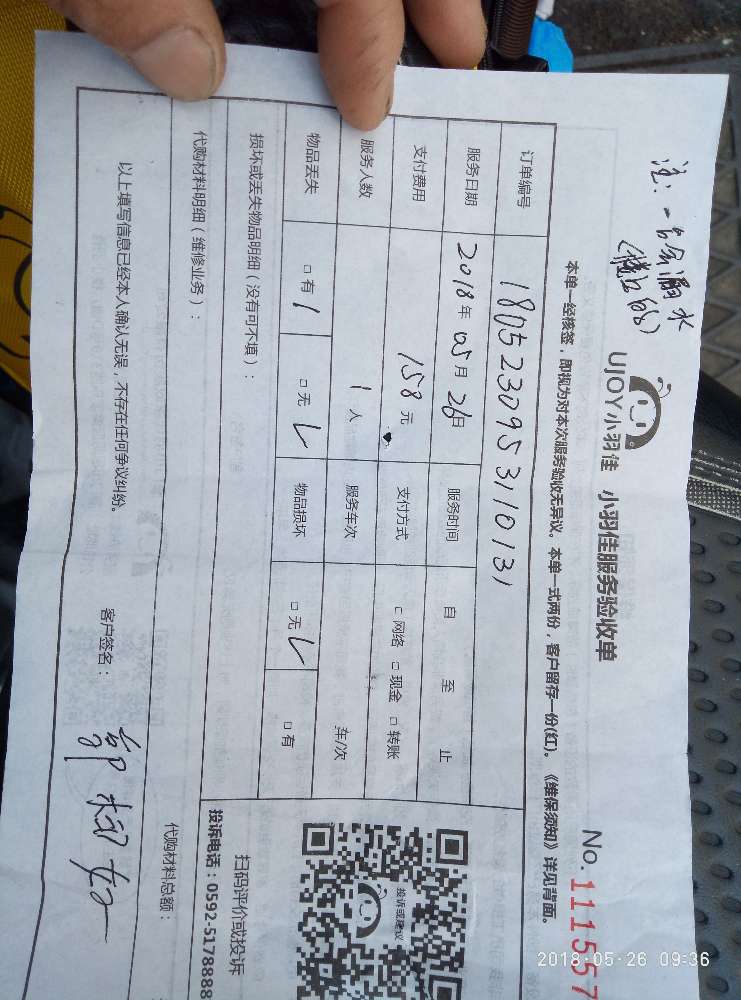 注：一名会漏水
（楼上的）
UJOY小羽佳 小羽佳服务验收单
No. 111557
本单一经核签，即视为对本次服务验收无异议。本单一式两份，客户留存一份(红)。《维保须知》详见背面。
订单编号 180523095311013)
服务日期 2018年05月26日 服务时间 自 至 止
支付费用 158元 支付方式 □ 网络 □ 现金 □ 转账
服务人数 1人 服务车次 车/次
物品丢失 □ 有 □ 无 物品损坏 □ 无 □ 有
损坏或丢失物品明细（没有可不填）：
投诉或建议
扫码评价或投诉
投诉电话：0592-5178888
代购材料明细（维修业务）：
代购材料总额：
以上填写信息已经本人确认无误，不存在任何争议纠纷。
客户签名：
2018-05-26 09:36